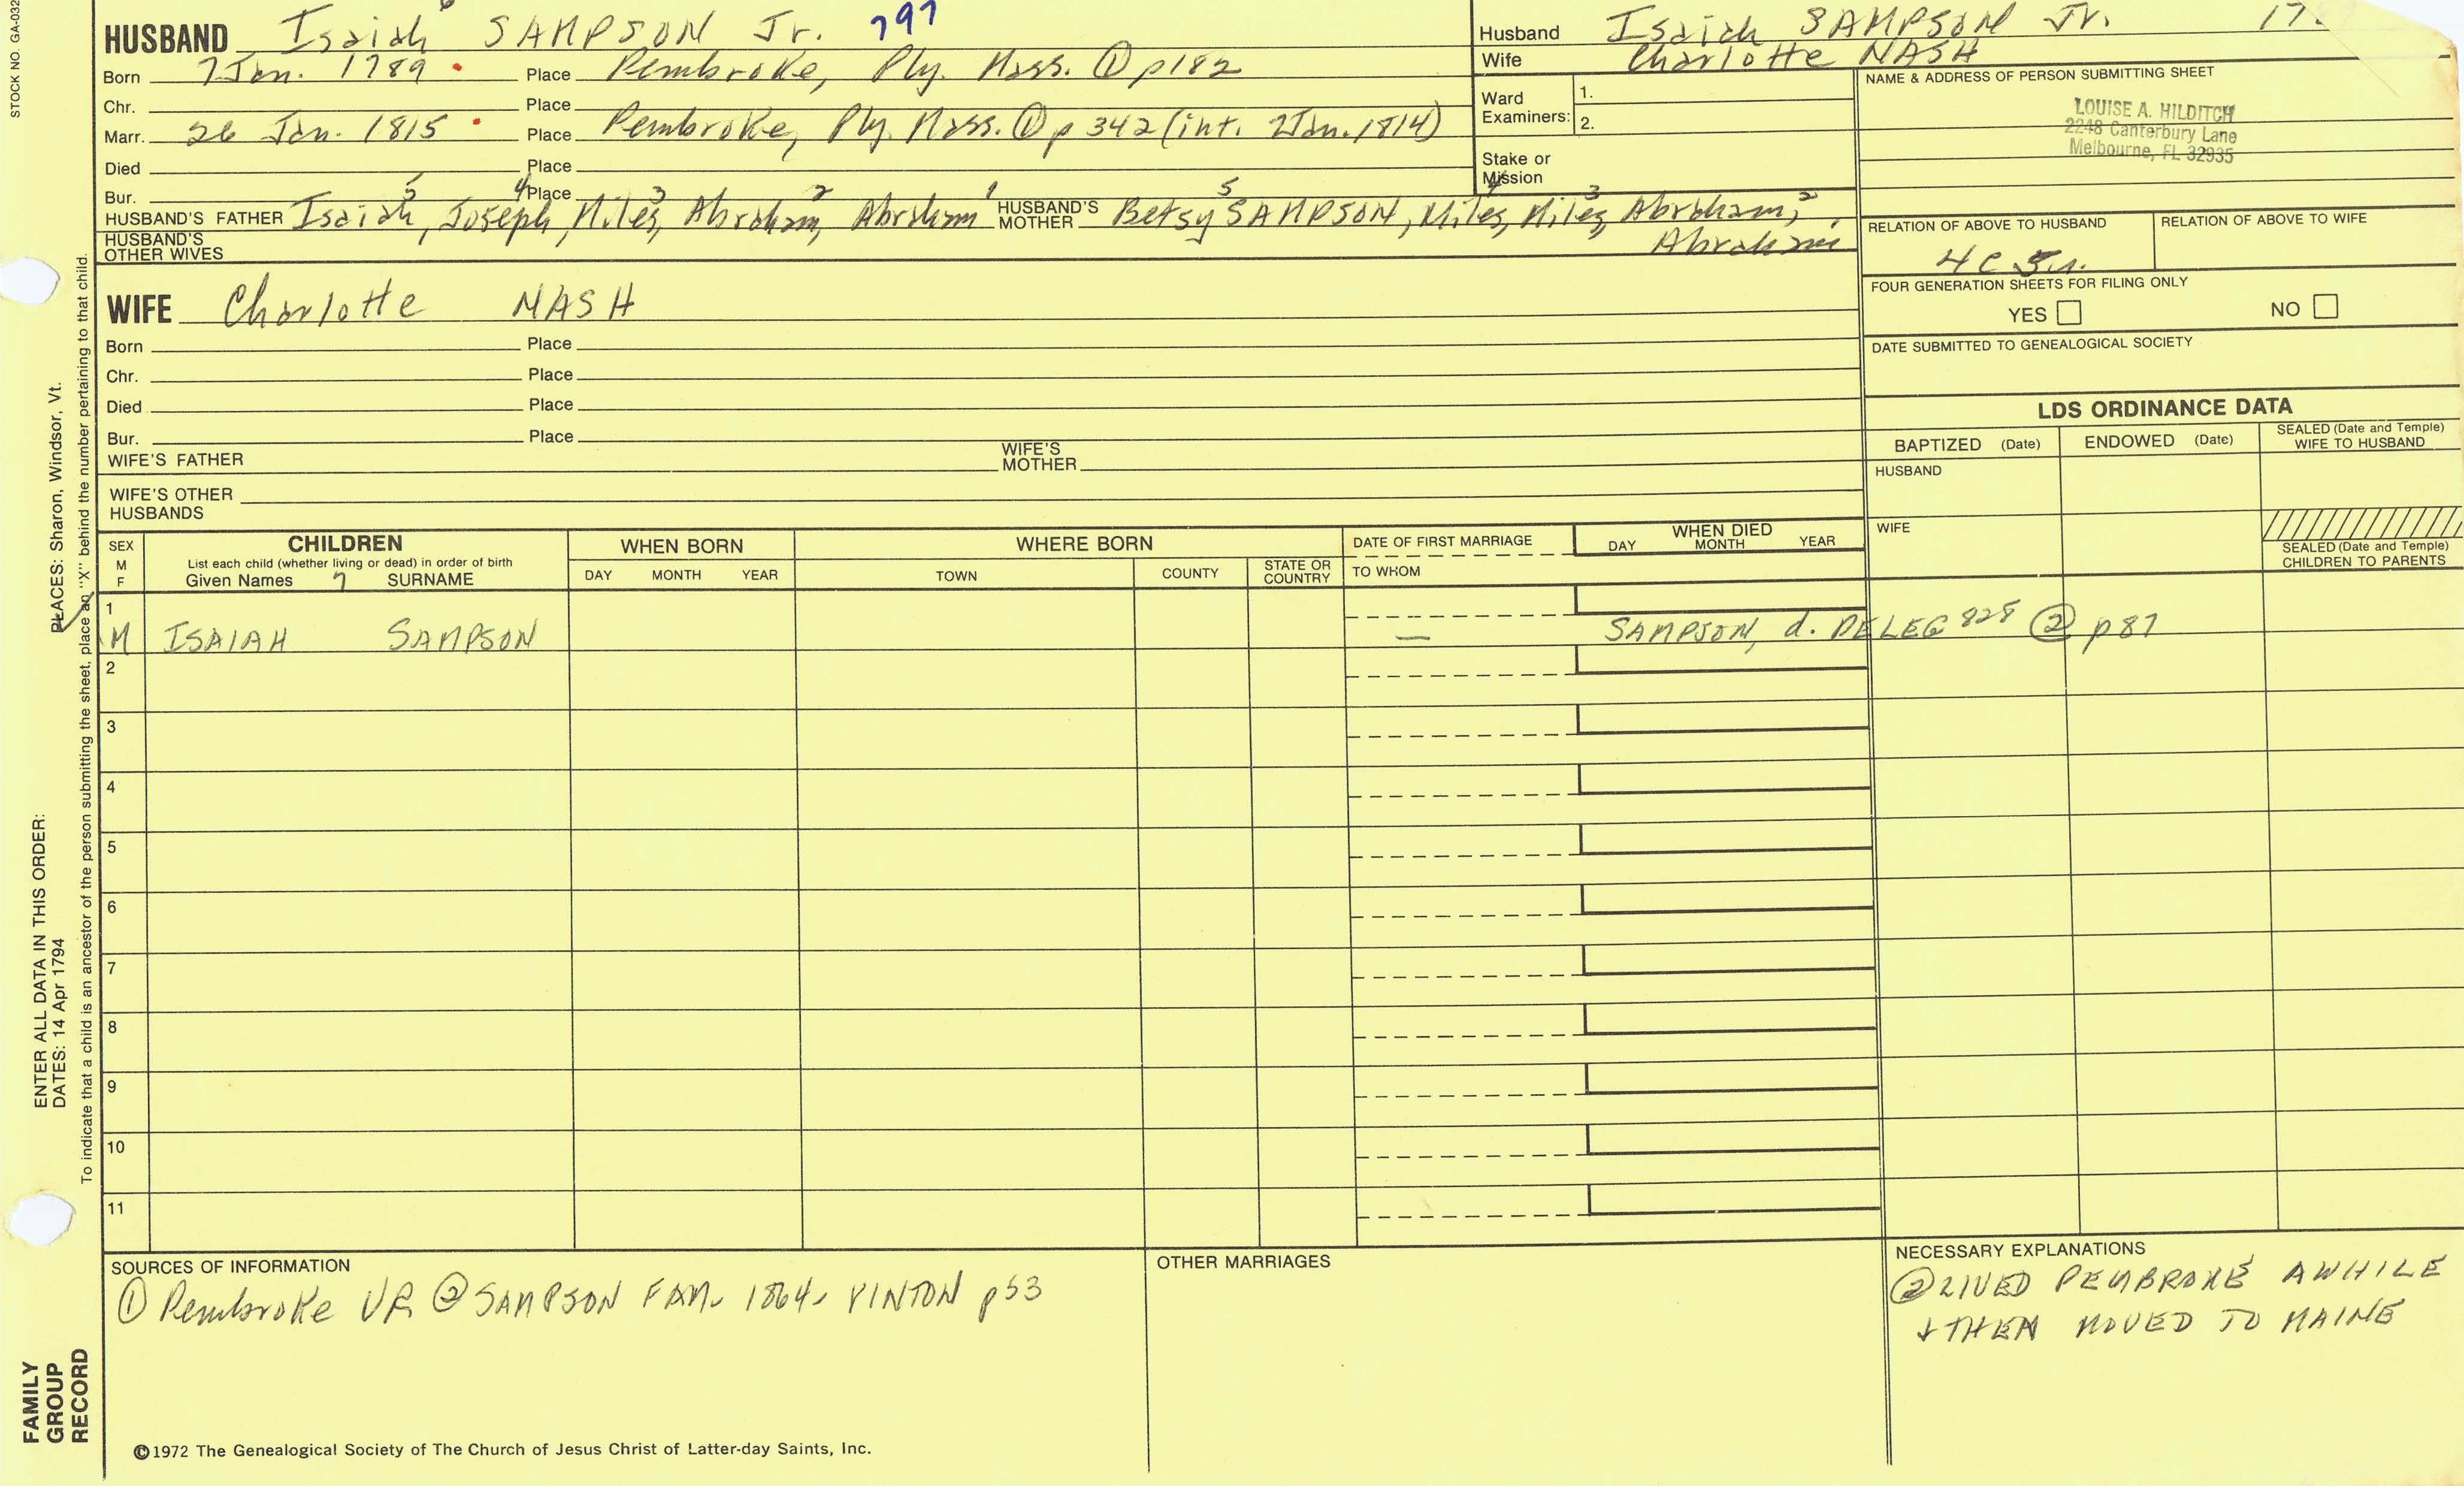 STOCK NO. GA-032
HUSBAND Isaiah 6 SAMPSON Jr. 797
Born 7 Jan. 1789 Place Pembroke, Ply. Mass. ① p182
Chr. Place
Marr. 26 Jan. 1815 Place Pembroke, Ply. Mass. ① p 342 (int. 2 Jan. 1814)
Died Place
Bur. Place
HUSBAND'S FATHER Isaiah 5, Joseph 4, Miles 3, Abraham 2, Abraham 1 HUSBAND'S MOTHER Betsy 5 SAMPSON, Miles 4, Miles 3, Abraham 2,
Abraham
HUSBAND'S OTHER WIVES
WIFE Charlotte NASH
Born Place
Chr. Place
Died Place
Bur. Place
WIFE'S FATHER WIFE'S MOTHER
WIFE'S OTHER HUSBANDS
Husband Isaiah SAMPSON Jr. 17
Wife Charlotte NASH
Ward Examiners: 1.
2.
Stake or Mission
NAME & ADDRESS OF PERSON SUBMITTING SHEET
LOUISE A. HILDITCH
2248 Canterbury Lane
Melbourne, FL 32935
RELATION OF ABOVE TO HUSBAND RELATION OF ABOVE TO WIFE
4 C 5 r.
FOUR GENERATION SHEETS FOR FILING ONLY
YES NO
DATE SUBMITTED TO GENEALOGICAL SOCIETY
LDS ORDINANCE DATA
BAPTIZED (Date) ENDOWED (Date) SEALED (Date and Temple) WIFE TO HUSBAND
HUSBAND
WIFE
SEALED (Date and Temple) CHILDREN TO PARENTS
SEX M F
CHILDREN
List each child (whether living or dead) in order of birth
Given Names 7 SURNAME
WHEN BORN
DAY MONTH YEAR
WHERE BORN
TOWN COUNTY STATE OR COUNTRY
DATE OF FIRST MARRIAGE
TO WHOM
WHEN DIED
DAY MONTH YEAR
1
M ISAIAH SAMPSON — SAMPSON, d. PELEG 828 ② p87
2
3
4
5
6
7
8
9
10
11
SOURCES OF INFORMATION
① Pembroke VR ② SAMPSON FAM. 1864, VINTON p53
OTHER MARRIAGES
NECESSARY EXPLANATIONS
② LIVED PEMBROKE AWHILE
+ THEN MOVED TO MAINE
©1972 The Genealogical Society of The Church of Jesus Christ of Latter-day Saints, Inc.
FAMILY
GROUP
RECORD
ENTER ALL DATA IN THIS ORDER:
DATES: 14 Apr 1794
PLACES: Sharon, Windsor, Vt.
To indicate that a child is an ancestor of the person submitting the sheet, place an "X" behind the number pertaining to that child.